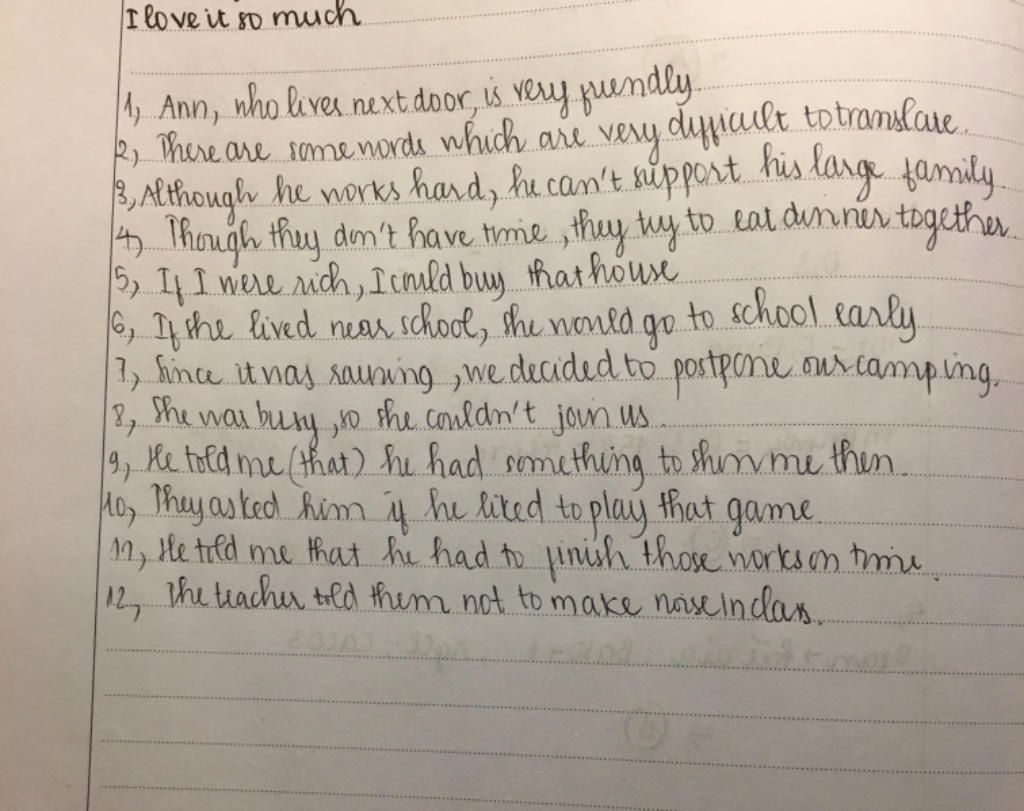 I love it so much
1, Ann, who lives next door, is very friendly
2, There are some words which are very difficult to translate.
3, Although he works hard, he can't support his large family
4, Though they don't have time, they try to eat dinner together
5, If I were rich, I could buy that house
6, If she lived near school, she would go to school early
7, Since it was raining, we decided to postpone our camping.
8, She was busy, so she couldn't join us.
9, He told me (that) he had something to show me then.
10, They asked him if he liked to play that game
11, He told me that he had to finish those works on time.
12, The teacher told them not to make noise in class.